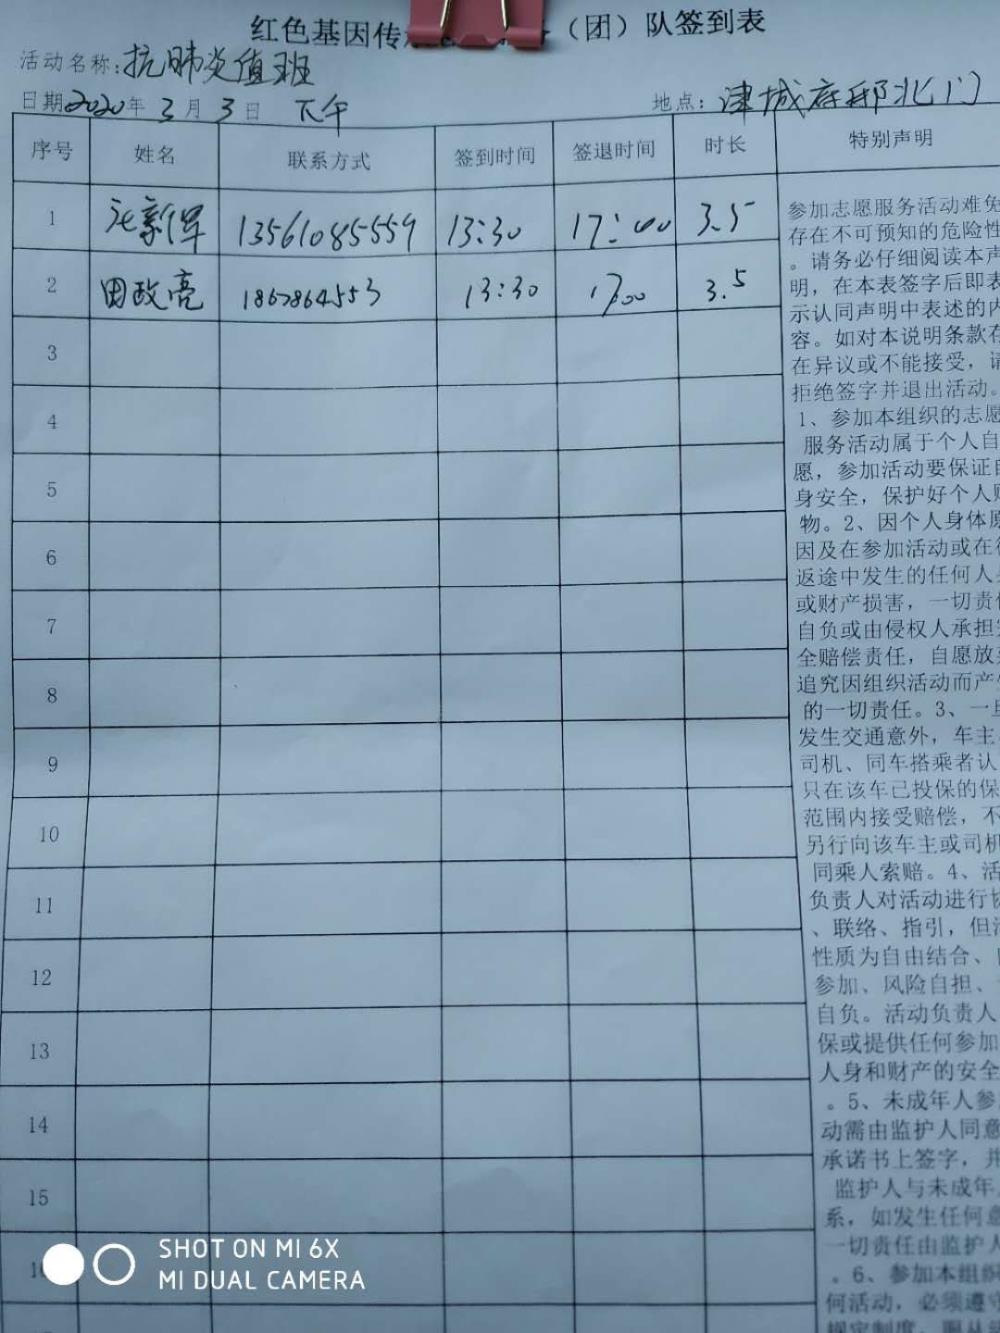 红色基因传 （团）队签到表
活动名称：抗肺炎值班
日期2020年3月3日 下午 地点：津城府邸北门
序号 姓名 联系方式 签到时间 签退时间 时长 特别声明
1 新军 13561085559 13:30 17:00 3.5
2 田政亮 1867864553 13:30 17:00 3.5
3
4
5
6
7
8
9
10
11
12
13
14
15
参加志愿服务活动难免
存在不可预知的危险性
。请务必仔细阅读本声
明，在本表签字后即表
示认同声明中表述的内
容。如对本说明条款存
在异议或不能接受，请
拒绝签字并退出活动。
1、参加本组织的志愿
服务活动属于个人自
愿，参加活动要保证自
身安全，保护好个人财
物。2、因个人身体原
因及在参加活动或在往
返途中发生的任何人身
或财产损害，一切责任
自负或由侵权人承担完
全赔偿责任，自愿放弃
追究因组织活动而产生
的一切责任。3、一旦
发生交通意外，车主、
司机、同车搭乘者认
只在该车已投保的保
范围内接受赔偿，不
另行向该车主或司机
同乘人索赔。4、活
负责人对活动进行协
、联络、指引，但活
性质为自由结合、自
参加、风险自担、
自负。活动负责人
保或提供任何参加
人身和财产的安全
。5、未成年人参
动需由监护人同意
承诺书上签字，并
监护人与未成年人
系，如发生任何意
一切责任由监护人
。6、参加本组织
何活动，必须遵守
规定制度，服从
SHOT ON MI 6X
MI DUAL CAMERA